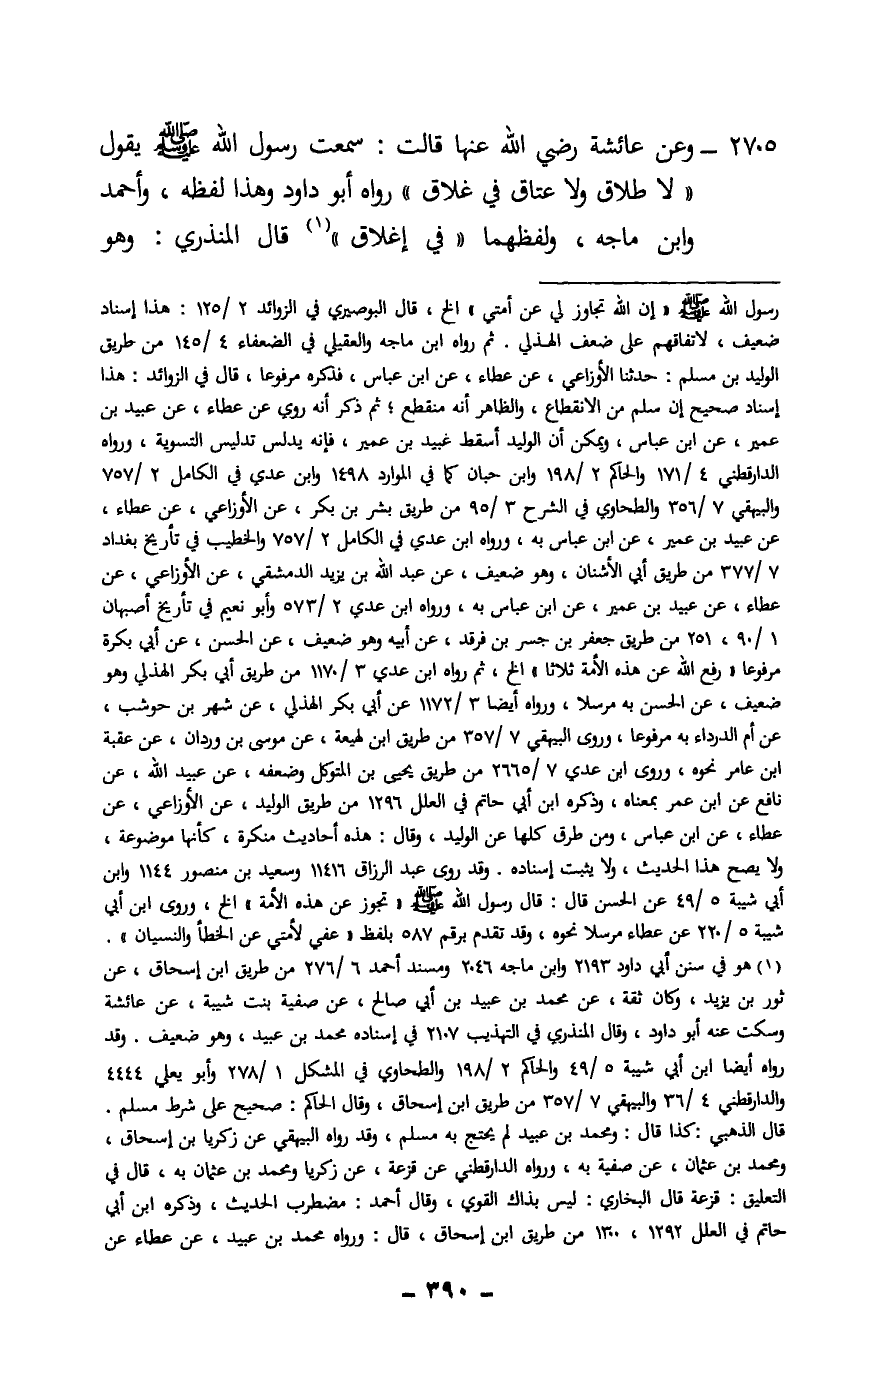 ٢٧٠٥ ــ وعن عائشة رضي الله عنها قالت : سمعت رسول الله ﷺ يقول
« لا طلاق ولا عتاق في غلاق » رواه أبو داود وهذا لفظه ، وأحمد
وابن ماجه ، ولفظهما « في إغلاق »(١) قال المنذري : وهو
رسول الله ﷺ « إن الله تجاوز لي عن أمتي » الخ ، قال البوصيري في الزوائد ٢ /١٢٥ : هذا إسناد
ضعيف ، لاتفاقهم على ضعف الهذلي . ثم رواه ابن ماجه والعقيلي في الضعفاء ٤ /١٤٥ من طريق
الوليد بن مسلم : حدثنا الأوزاعي ، عن عطاء ، عن ابن عباس ، فذكره مرفوعا ، قال في الزوائد : هذا
إسناد صحيح إن سلم من الانقطاع ، والظاهر أنه منقطع ؛ ثم ذكر أنه روي عن عطاء ، عن عبيد بن
عمير ، عن ابن عباس ، ويمكن أن الوليد أسقط غبيد بن عمير ، فإنه يدلس تدليس التسوية ، ورواه
الدارقطني ٤ /١٧١ والحاكم ٢ /١٩٨ وابن حبان كما في الموارد ١٤٩٨ وابن عدي في الكامل ٢ /٧٥٧
والبيهقي ٧ /٣٥٦ والطحاوي في الشرح ٣ /٩٥ من طريق بشر بن بكر ، عن الأوزاعي ، عن عطاء ،
عن عبيد بن عمير ، عن ابن عباس به ، ورواه ابن عدي في الكامل ٢ /٧٥٧ والخطيب في تأريخ بغداد
٧ /٣٧٧ من طريق أبي الأشنان ، وهو ضعيف ، عن عبد الله بن يزيد الدمشقي ، عن الأوزاعي ، عن
عطاء ، عن عبيد بن عمير ، عن ابن عباس به ، ورواه ابن عدي ٢ /٥٧٣ وأبو نعيم في تأريخ أصبهان
١ /٩٠ ، ٢٥١ من طريق جعفر بن جسر بن فرقد ، عن أبيه وهو ضعيف ، عن الحسن ، عن أبي بكرة
مرفوعا « رفع الله عن هذه الأمة ثلاثا » الخ ، ثم رواه ابن عدي ٣ /١١٧٠ من طريق أبي بكر الهذلي وهو
ضعيف ، عن الحسن به مرسلا ، ورواه أيضا ٣ /١١٧٢ عن أبي بكر الهذلي ، عن شهر بن حوشب ،
عن أم الدرداء به مرفوعا ، وروى البيهقي ٧ /٣٥٧ من طريق ابن لهيعة ، عن موسى بن وردان ، عن عقبة
ابن عامر نحوه ، وروى ابن عدي ٧ /٢٦٦٥ من طريق يحيى بن المتوكل وضعفه ، عن عبيد الله ، عن
نافع عن ابن عمر بمعناه ، وذكره ابن أبي حاتم في العلل ١٢٩٦ من طريق الوليد ، عن الأوزاعي ، عن
عطاء ، عن ابن عباس ، ومن طرق كلها عن الوليد ، وقال : هذه أحاديث منكرة ، كأنها موضوعة ،
ولا يصح هذا الحديث ، ولا يثبت إسناده . وقد روى عبد الرزاق ١١٤١٦ وسعيد بن منصور ١١٤٤ وابن
أبي شيبة ٥ /٤٩ عن الحسن قال : قال رسول الله ﷺ « تجوز عن هذه الأمة » الخ ، وروى ابن أبي
شيبة ٥ /٢٢٠ عن عطاء مرسلا نحوه ، وقد تقدم برقم ٥٨٧ بلفظ « عفي لأمتي عن الخطأ والنسيان » .
(١) هو في سنن أبي داود ٢١٩٣ وابن ماجه ٢٠٤٦ ومسند أحمد ٦ /٢٧٦ من طريق ابن إسحاق ، عن
ثور بن يزيد ، وكان ثقة ، عن محمد بن عبيد بن أبي صالح ، عن صفية بنت شيبة ، عن عائشة
وسكت عنه أبو داود ، وقال المنذري في التهذيب ٢١٠٧ في إسناده محمد بن عبيد ، وهو ضعيف . وقد
رواه أيضا ابن أبي شيبة ٥ /٤٩ والحاكم ٢ /١٩٨ والطحاوي في المشكل ١ /٢٧٨ وأبو يعلي ٤٤٤٤
والدارقطني ٤ /٣٦ والبيهقي ٧ /٣٥٧ من طريق ابن إسحاق ، وقال الحاكم : صحيح على شرط مسلم .
قال الذهبي :كذا قال : ومحمد بن عبيد لم يحتج به مسلم ، وقد رواه البيهقي عن زكريا بن إسحاق ،
ومحمد بن عثمان ، عن صفية به ، ورواه الدارقطني عن قزعة ، عن زكريا ومحمد بن عثمان به ، قال في
التعليق : قزعة قال البخاري : ليس بذاك القوي ، وقال أحمد : مضطرب الحديث ، وذكره ابن أبي
حاتم في العلل ١٢٩٢ ، ١٣٠٠ من طريق ابن إسحاق ، قال : ورواه محمد بن عبيد ، عن عطاء عن
ــ ٣٩٠ ــ